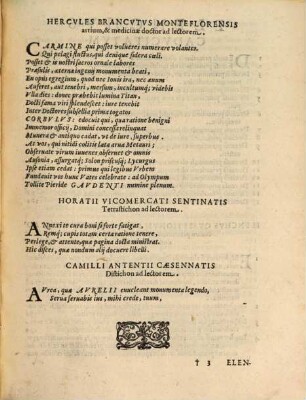 HERCVLES BRANCVTVS MONTEFLORENSIS
artium, & medicinæ doctor ad lectorem..
CARMINE qui posset volucres numerare volantes,
Qui pelagi fluctus, qui denique sidera cæli.
Posset & is nostri sacros ornale labores
Præsidis, æterna ingenij monumenta beati,
En opus egregium, quod nec Iouis ira, nec æuum
Auferet, aut tenebri, mersum, incultumq; videbis
Vlla dies: donec præbebit lumina Titan,
Docti fama viri splendescet: iure tenebit
Inter Doctores subsellia prima togatos
CORBVLVS: edocuit qui, quaratione benigni
Immemor officij, Domini concessa relinquat
Munera & antiquo cadat, vt de iure, superbus.
At vos, qui nitidi colitis lata arua Metauri
Obseruate virum iuuenes obseruet & omnis
Ausonia, assurgatq; Solon priscusq; Lycurgus
Ipse etiam cedat: primus qui legibus Vrbem
Fundauit vos hunc Vates celebrate: ad Olympum
Tollite Pieride GAVDENTI numine plenum.
HORATII VICOMERCATI SENTINATIS
Tetrastichon ad lectorem..
ANnexi te cura boni si forte fatigat,
Remq; cupis totam certa ratione tenere,
Perlege, & attente, quæ pagina docta ministrat.
Hic disces, quæ nondum alij docuere libelli.
CAMILLI ANTENTII CÆSENNATIS
Distichon ad lectorem..
AVrea, quæ AVRELII euucleant monumenta legendo,
Serua seruabis ius, mihi crede, tuum,
† 3 ELEN.